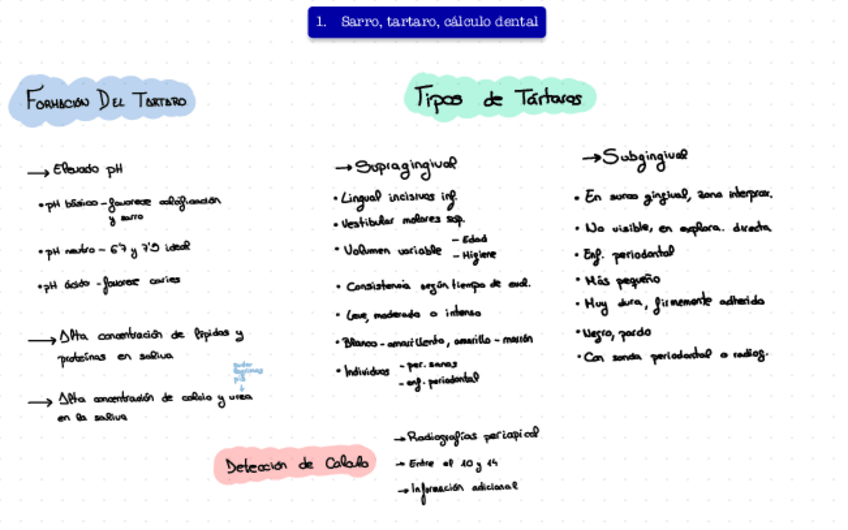 1. Sarro, tartaro, cálculo dental
FORMACIÓN DEL TARTARO
→ Elevado pH
• pH básico - favorece calcificación
y sarro
• pH neutro - 6'7 y 7'5 ideal
• pH ácido - favorece caries
→ Alta concentración de lípidos y
proteínas en saliva
→ Alta concentración de calcio y urea
en la saliva
Tipos de Tártaros
→ Supragingival
• Lingual incisivos inf.
• Vestibular molares sup.
• Volumen variable - Edad
- Higiene
• Consistencia según tiempo de evol.
• Leve, moderado o intenso
• Blanco-amarillento, amarillo-marrón
• Individuos - per. sanas
- enf. periodontal
→ Subgingival
• En surco gingival, zona interprox.
• No visible, en explora. directa
• Enf. periodontal
• Más pequeño
• Muy dura, firmemente adherido
• Negro, pardo
• Con sonda periodontal o radiog.
Detección de Calculo
→ Radiografías periapical
→ Entre el 10 y 14
→ Información adicional